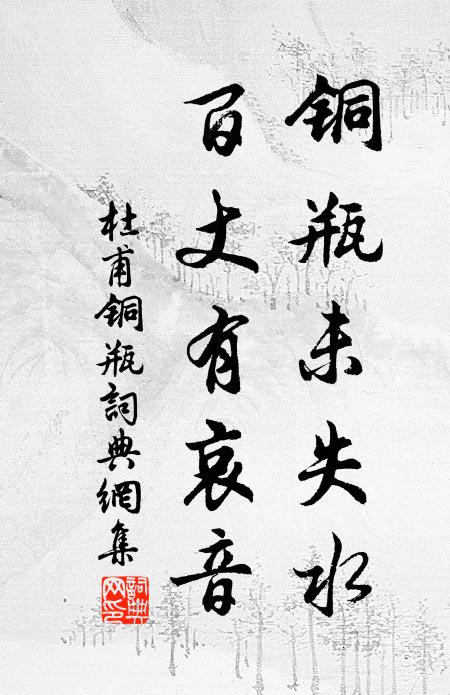 铜瓶未失水
百丈有哀音
杜甫銅瓶詞典網集
詞典
网印